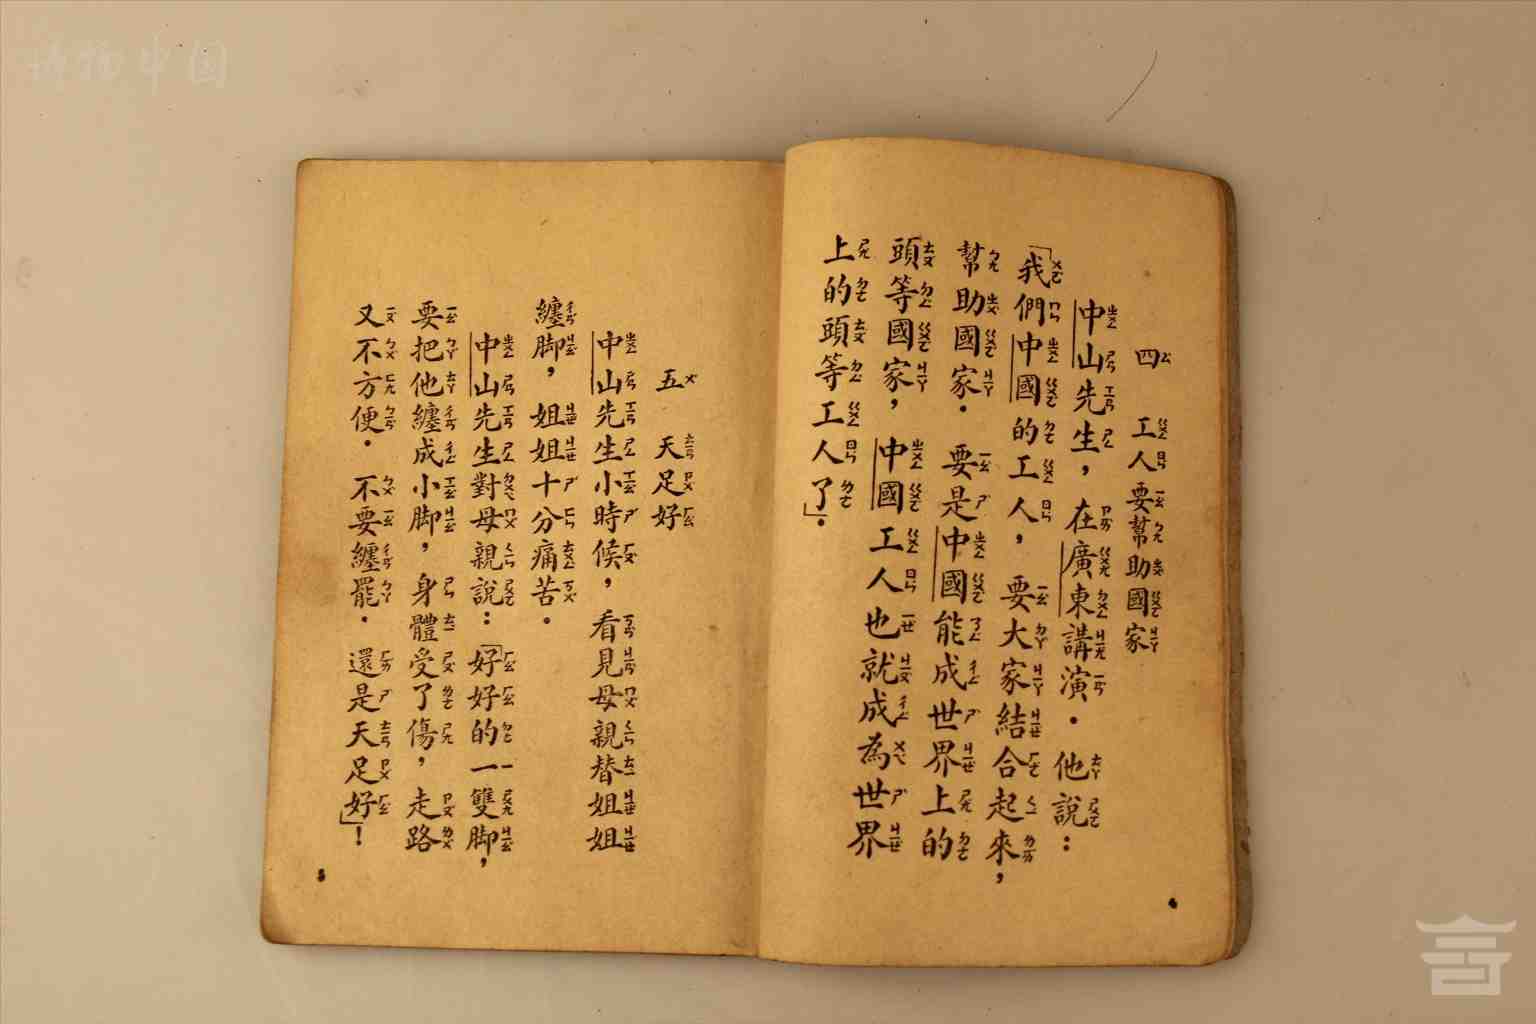 博物中国
四 工人要幫助國家
中山先生，在廣東講演．他說：
「我們中國的工人，要大家結合起來，
幫助國家．要是中國能成世界上的
頭等國家，中國工人也就成為世界
上的頭等工人了」．
4
五 天足好
中山先生小時候，看見母親替姐姐
纏脚，姐姐十分痛苦．
中山先生對母親說：「好好的一雙脚，
要把他纏成小脚，身體受了傷，走路
又不方便．不要纏罷．還是天足好」！
5